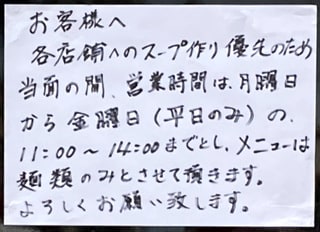 お客様へ
各店舗へのスープ作り優先のため
当面の間、営業時間は、月曜日
から金曜日(平日のみ)の、
11:00～14:00までとし、メニューは
麺類のみとさせて頂きます。
よろしくお願い致します。